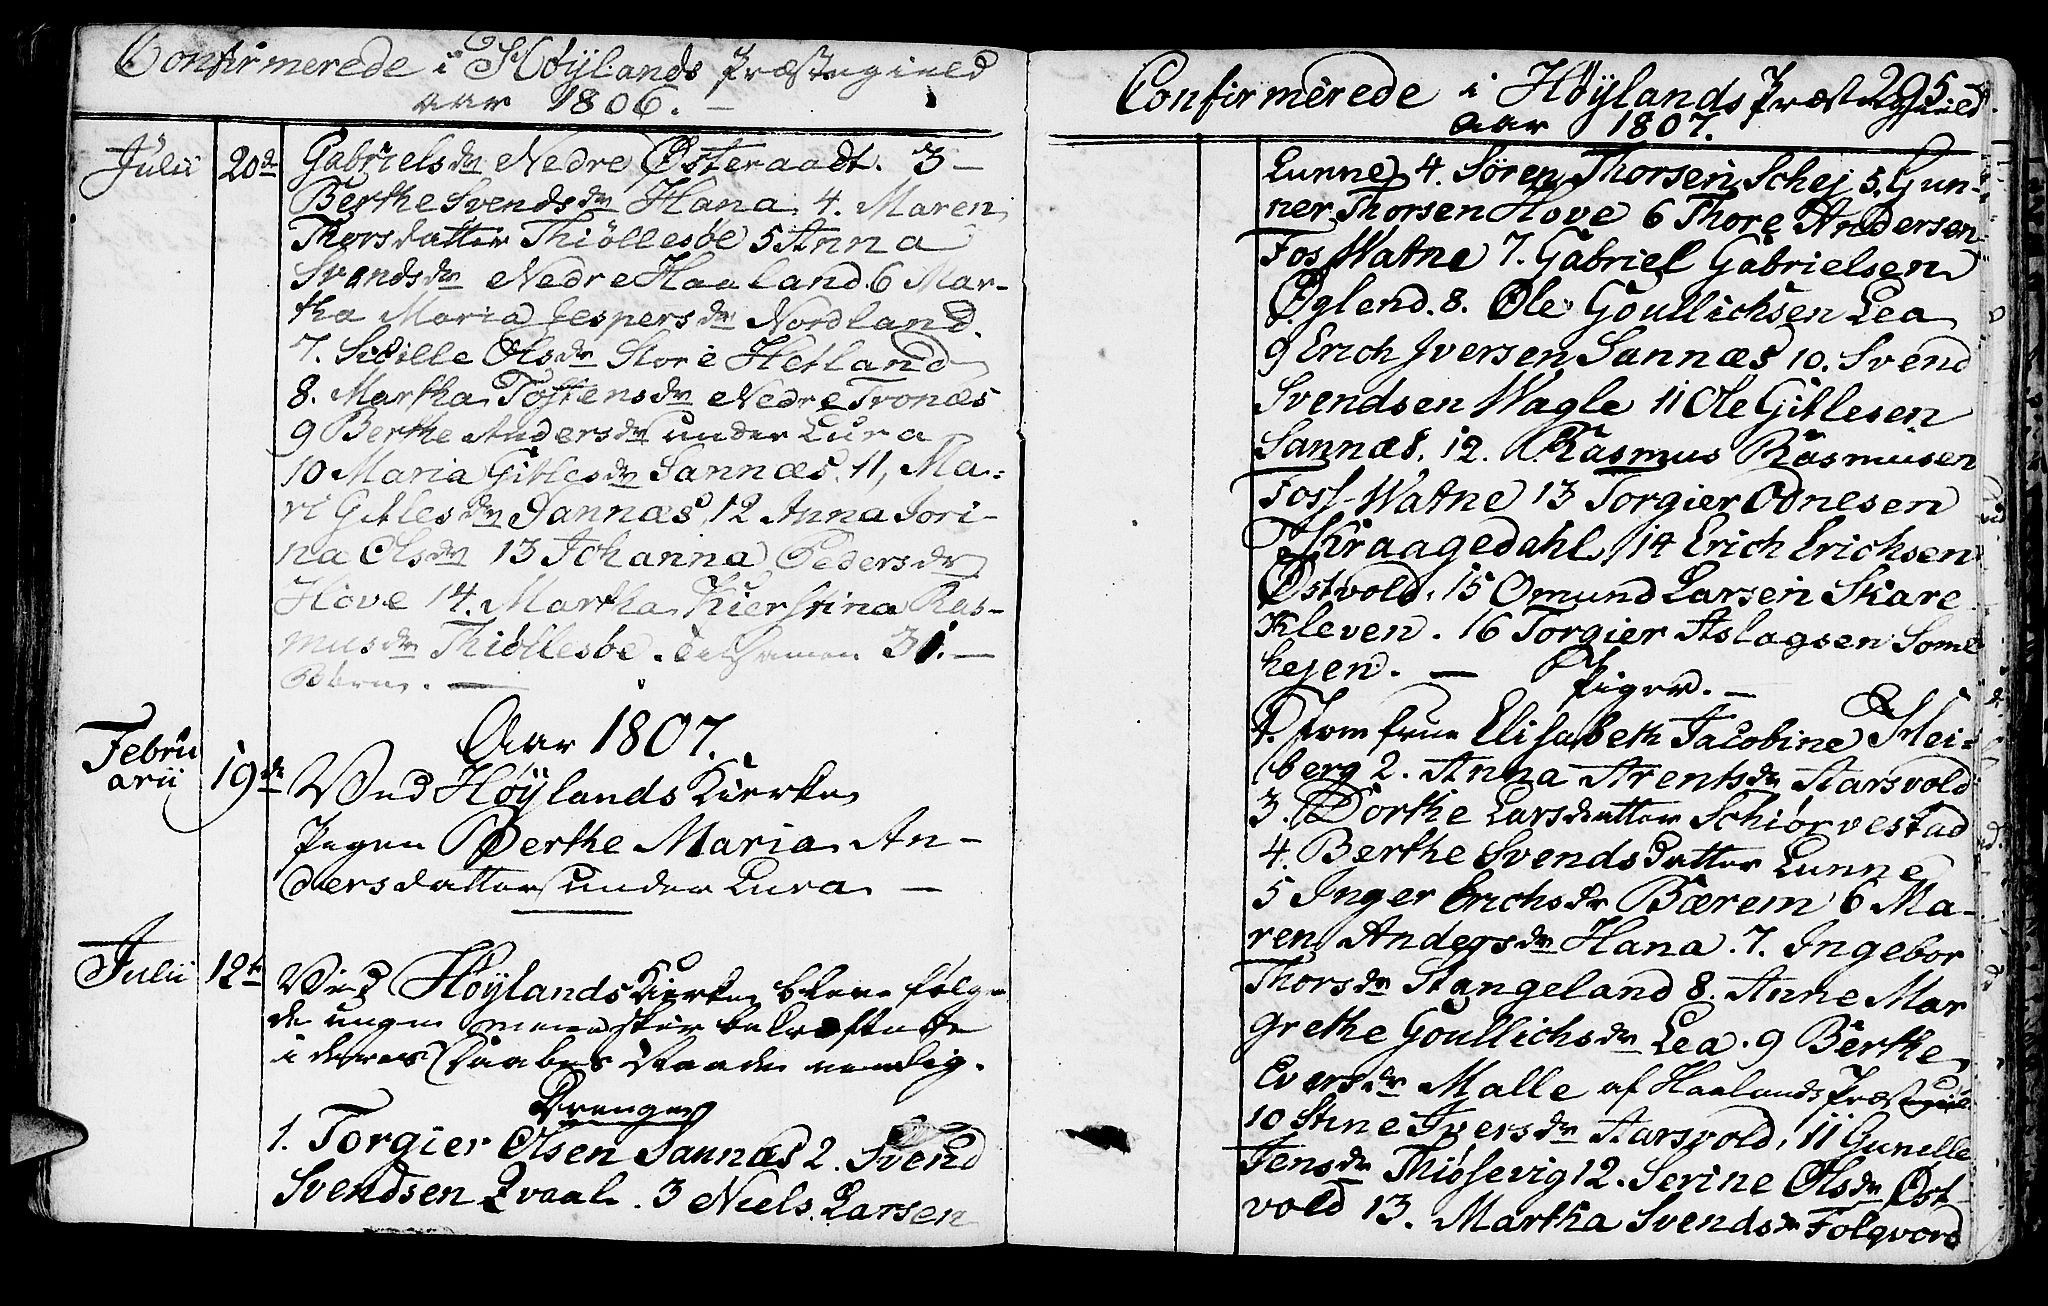 Confirmerede i Höÿlands Præstegield
aar 1806. –
Julii 20de Gabrielsdr Nedre Østeraadt. 3 –
Berthe Svendsdr Hana, 4. Maren
Thorsdatter Thiöllesbe 5 Anna
Svendsdr Nedre Haaland. 6 Mar-
tha Maria Jespersdr Nordland.
7. Sidille Olsdr Store Hetland
8. Martha Tostensdr Nedre Tronæs
9 Berthe Andersdr under Lura
10 Maria Gitlesdr Sannæs. 11, Ma-
ri Gitlesdr Sannæs 12 Anna Jori-
na Olsdr 13 Johanna Pedersdr
Hove 14. Martha Kierstina Ras-
musdr Thiöllesbe. Tilsamen 31. –
Börn. –
Aar 1807.
Febru
arii 19de Ved Höÿlands Kierke
Pigen Berthe Maria An-
dersdatter under Lura –
Julii 12te Ved Höÿlands Kierke bleve følgen
de unge mennesker bekræftede
i deres Daabes Naade nemlig.
Drenge
1. Torgier Olsen Sannæs 2. Svend
Svendsen Qvaal. 3 Niels Larsen
Confirmerede i Höÿlands Præstegield 295
aar 1807.
Lunne 4. Sören Thorsen Schej 5. Gun-
ner Thorsen Hove 6 Thore Andersen
Foss Watne 7. Gabriel Gabrielsen
Øglend. 8. Ole Goullichsen Lea
9 Erich Iversen Sannæs 10. Svend
Svendsen Wagle 11 Ole Gitlesen
Sannæs. 12. Rasmus Rasmusen
Foss-Watne 13 Torgier Odnesen
Kraagedahl, 14 Erich Erichsen
Østvold. 15 Omund Larsen Skare
Kleven. 16 Torgier Aslagsen Some
hejen. – Piger. –
1. Jomfrue Elisabeth Jacobine Hei-
berg 2. Anna Arentsdr Aarsvold
3. Dorthe Larsdatter Schiörvestad
4. Berthe Svendsdatter Lunne
5 Inger Erichsdr Bærem 6 Ma-
ren Andersdr Hana. 7. Ingebor
Thorsdr Stangeland 8. Anne Mar
grethe Goullichsdr Lea. 9 Berthe
Eversdr Malle af Haalands Præstegield
10 Stine Iversdr Aarsvold, 11 Gunille
Jensdr Thiösevig 12. Serine Olsdr Øst-
vold 13. Martha Svendsdr Folqvord